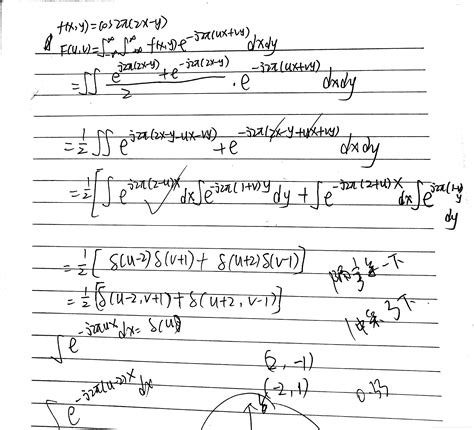 f(x,y)=cos2π(2x-y)
F(u,v)=∫_{-∞}^{∞}∫_{-∞}^{∞} f(x,y)e^{-j2π(ux+vy)} dxdy
=∬ (e^{j2π(2x-y)}+e^{-j2π(2x-y)})/2 · e^{-j2π(ux+vy)} dxdy
=1/2 ∬ e^{j2π(2x-y-ux-vy)}+e^{-j2π(2x-y+ux+vy)} dxdy
=1/2 [∫e^{j2π(2-u)x} dx∫e^{-j2π(1+v)y} dy + ∫e^{-j2π(2+u)x} dx∫e^{j2π(1-v)y} dy
=1/2 [δ(u-2)δ(v+1)+δ(u+2)δ(v-1)]
=1/2 [δ(u-2,v+1)+δ(u+2,v-1)]
∫e^{-j2πux}dx=δ(u)
(2,-1)
(-2,1)
0.33
∫e^{-j2π(u-2)x}dx